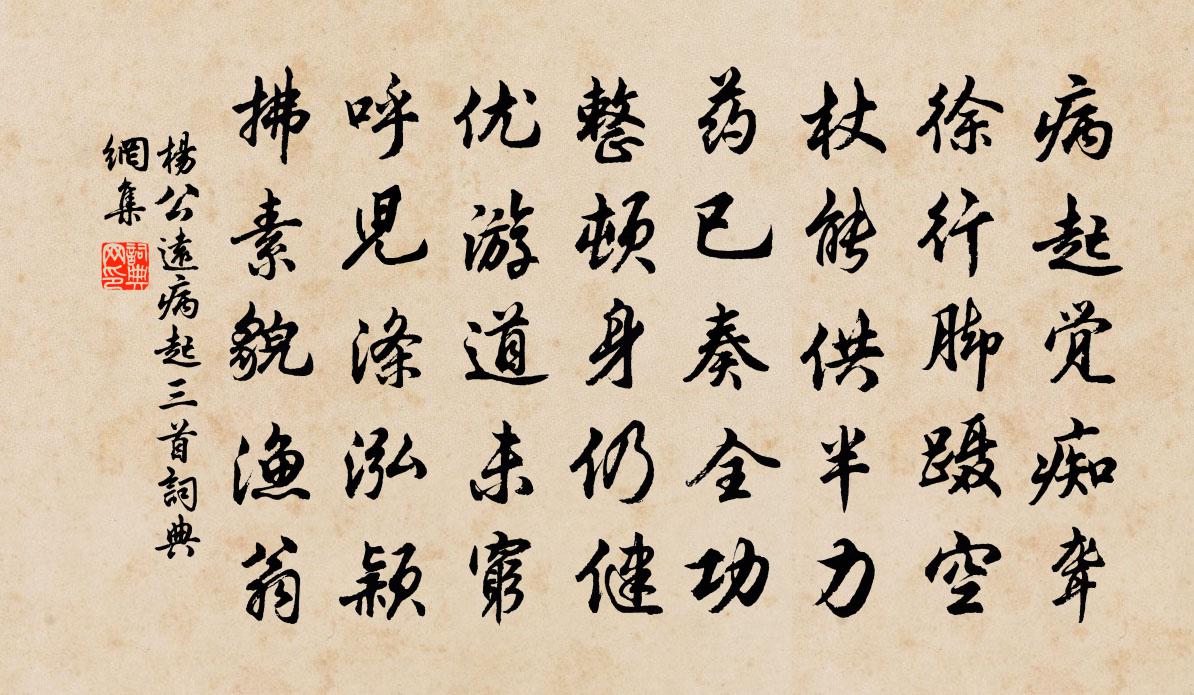 病起觉痴聋
徐行脚蹑空
杖能供半力
药已奏全功
整顿身仍健
优游道未穷
呼児涤泓颖
拂素貌渔翁
楊公遠病起三首詞典
網集
詞典
网印